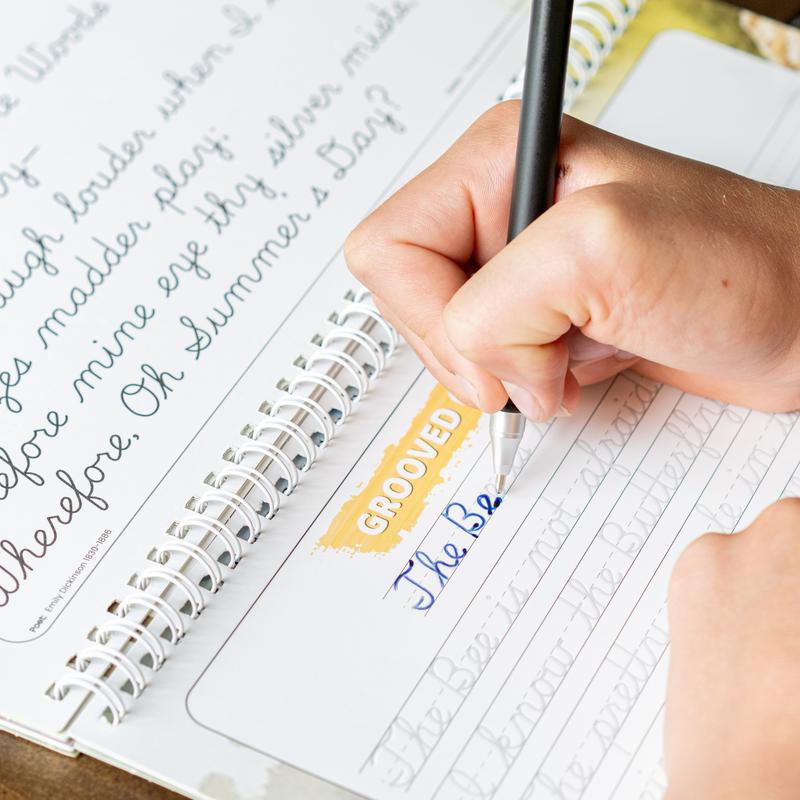 Woods
louder when I
madder play:
Before mine eye thy silver mists
Wherefore, Oh Summer s Day?
Poet: Emily Dickinson 1830-1886
GROOVED
The Be
The Bee is not afraid
I know the Butterfly
The pretty